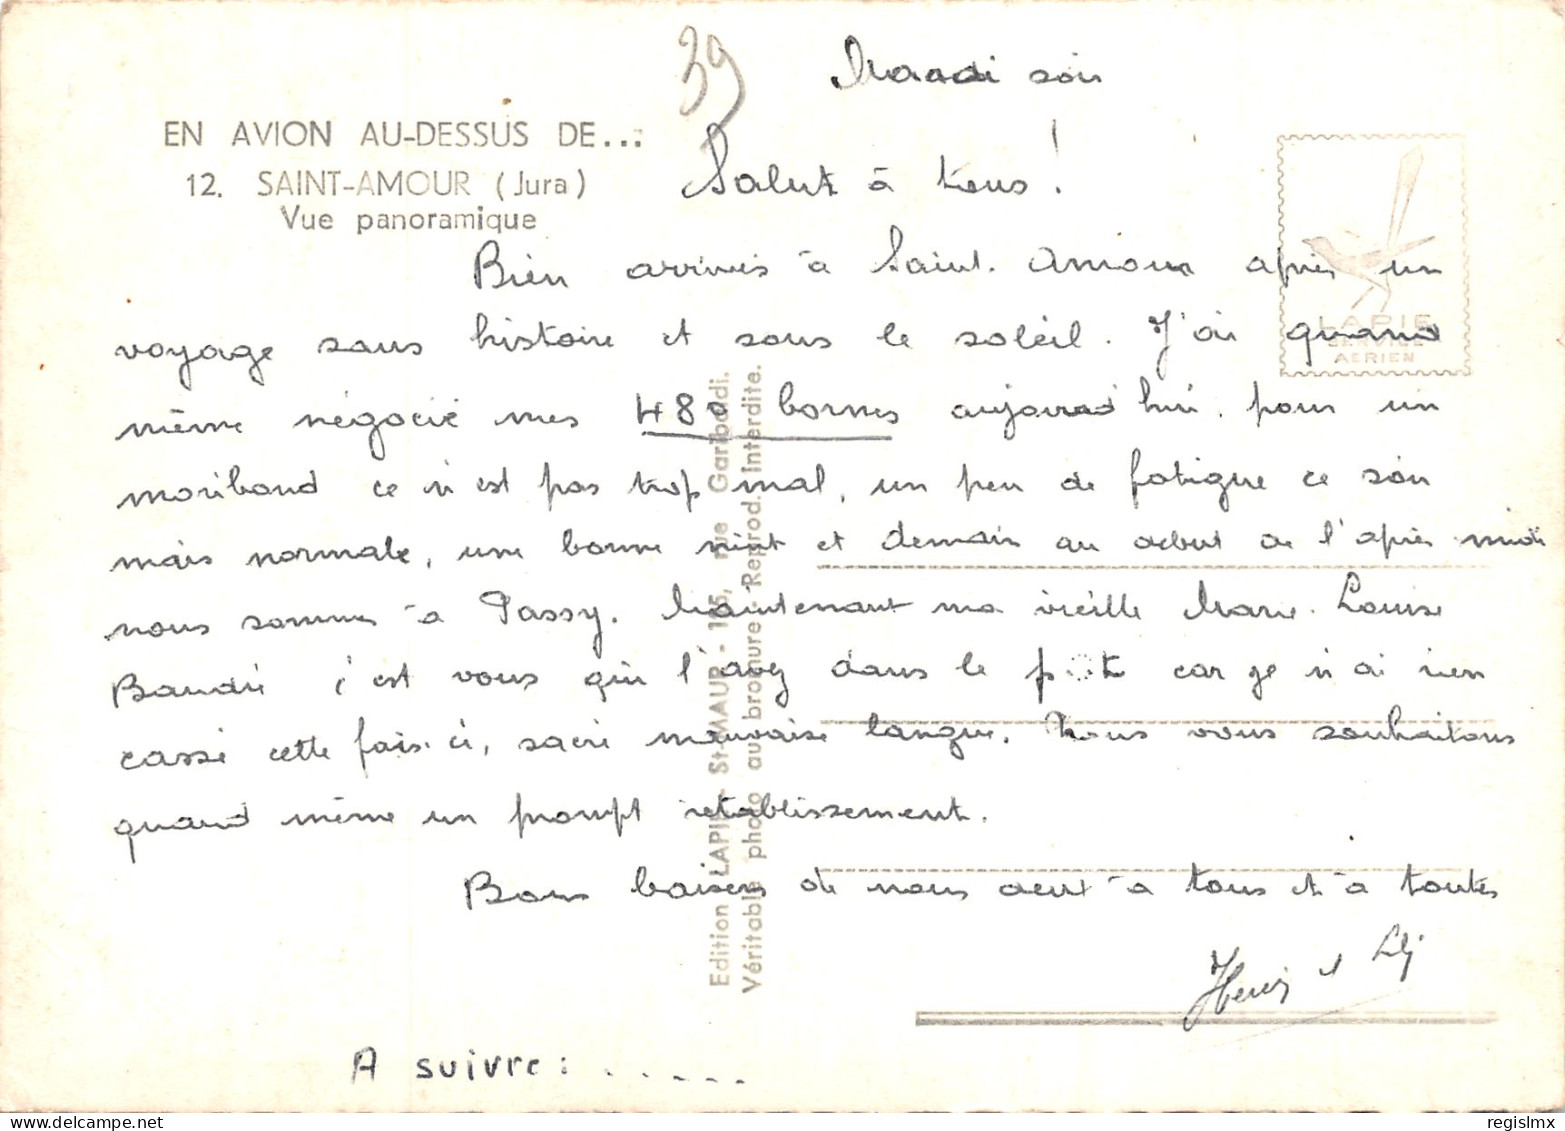 39
Mardi soir
EN AVION AU-DESSUS DE...
12. SAINT-AMOUR (Jura)
Vue panoramique
Salut à tous !
Bien arrivés à Saint-Amour après un
voyage sans histoire et sous le soleil. J'ai quand
même négocié mes 480 bornes aujourd'hui, pour un
moribond ce n'est pas trop mal, un peu de fatigue ce soir
mais normale, une bonne nuit et demain au début de l'après-midi
nous sommes à Passy. Maintenant ma vieille Marie-Louise
Baudri c'est vous qui l'avez dans le p..t car je n'ai rien
cassé cette fois-ci, sacré mauvaise langue. Nous vous souhaitons
quand même un prompt retablissement.
Bons baisers de nous deux à tous et à toutes
Henri et Lily
A suivre : . . . . .
LAPIE
SERVICE
AERIEN
Edition LAPIE - St-MAUR - 105, rue Garibaldi.
Véritable photo au bromure - Reprod. Interdite.
regislmx